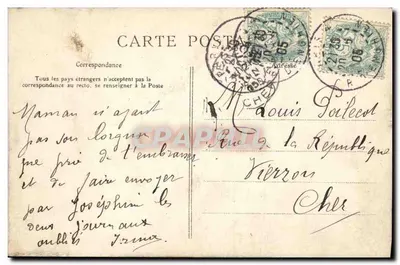 CARTE POSTALE
Correspondance
Tous les pays étrangers n'acceptent pas la
correspondance au recto, se renseigner à la Poste
Maman n'ayant
pas son lorgnon
me prie de t'embrasser
et de faire envoyer
par Joséphine les
deux journaux
oubliés Irma
M. Louis
Rue de la République
Vierzon
Cher